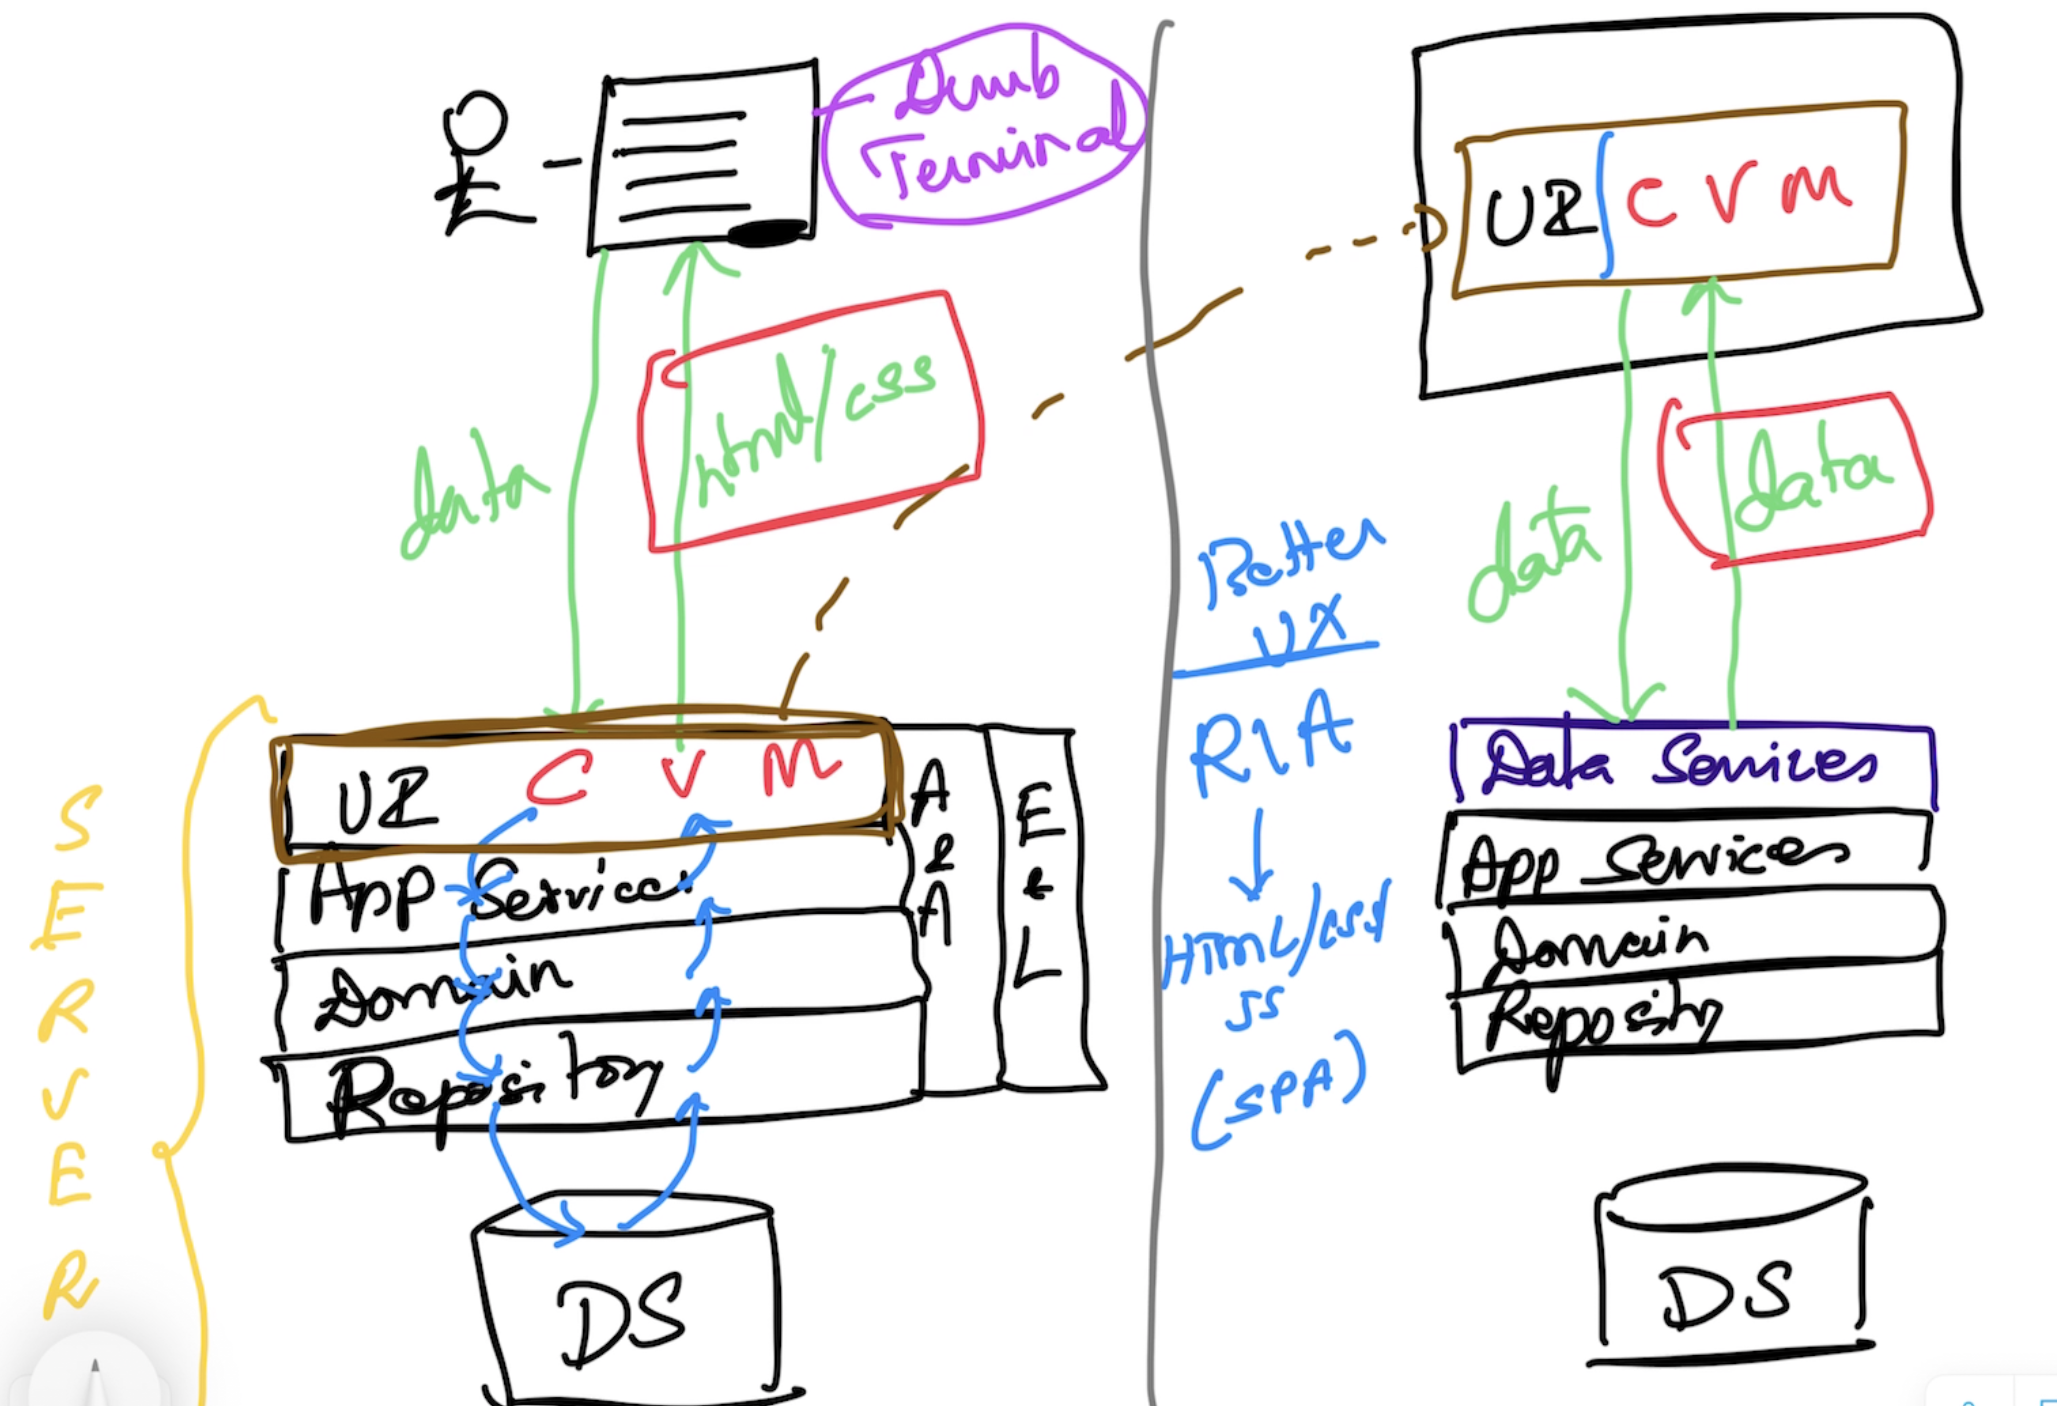 Dumb
Terminal
data
html/css
SERVER
UI C V M
App Services
Domain
Repository
A
&
A
E
&
L
DS
Better
UX
RIA
HTML/CSS/
JS
(SPA)
UI C V M
data
data
Data Services
App Services
Domain
Repository
DS